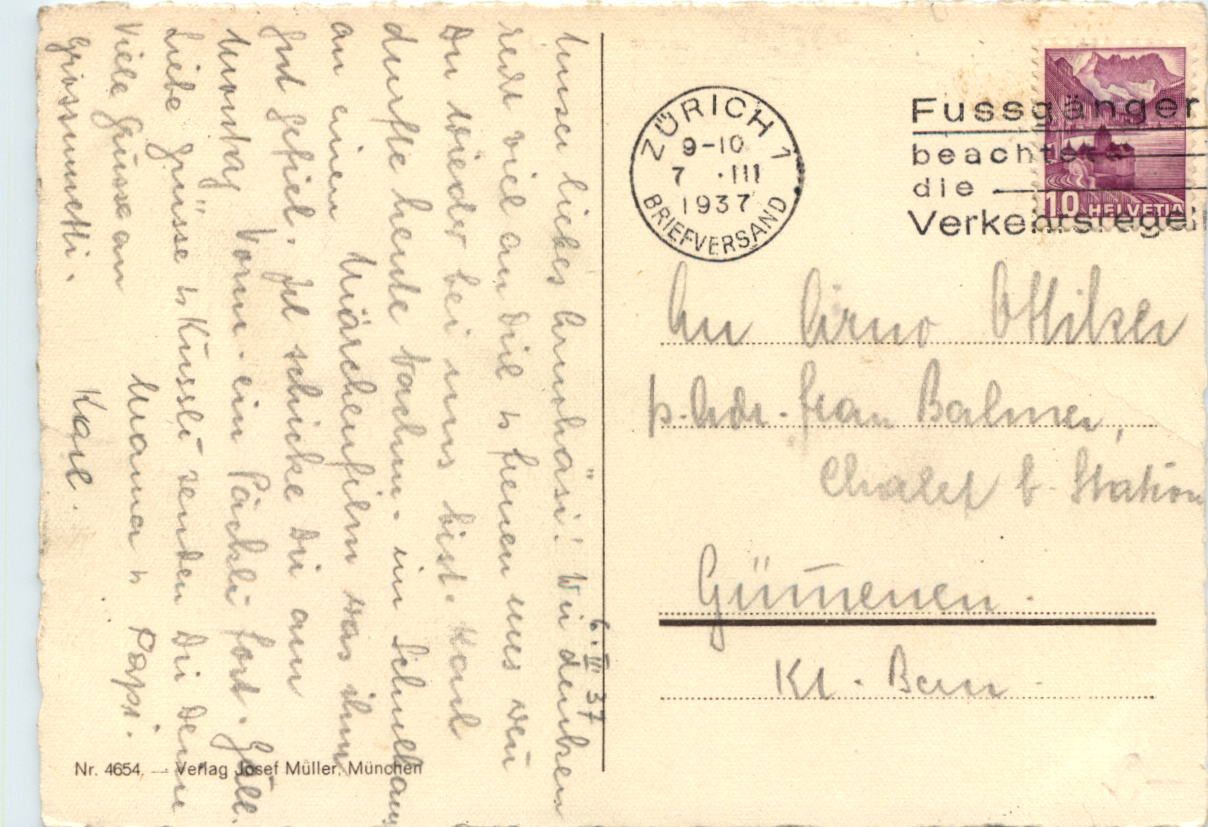 6. III 37
Unser liebes Arnohäsi! Wir denken
recht viel an Dich & freuen uns wen
Du wieder bei uns bist. Karl
durfte heute Nachm. im Schulhaus
an einen Märchenfilm was ihm
gut gefiel. Ich schicke Dir am
Montag Vorm. ein Päckli fort. Gäll.
Liebe Grüsse & Küssli senden Dir Deine
Viele Grüsse an Mama & Papi.
Grossmutti. Karl.
Nr. 4654 — Verlag Josef Müller, München
ZÜRICH 1
9-10
7 .III
1937
BRIEFVERSAND
Fussgänger
beachtet
die
Verkehrsregel
10 HELVETIA
An Arno Ottiker
p. Adr. Frau Balmer,
Chalet b. Station
Gümenen.
Kt. Bern.